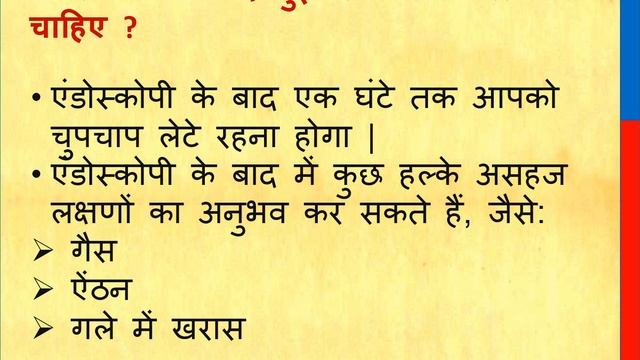 चाहिए ?
• एंडोस्कोपी के बाद एक घंटे तक आपको
चुपचाप लेटे रहना होगा |
• एंडोस्कोपी के बाद में कुछ हल्के असहज
लक्षणों का अनुभव कर सकते हैं, जैसे:
➢ गैस
➢ ऐंठन
➢ गले में खरास